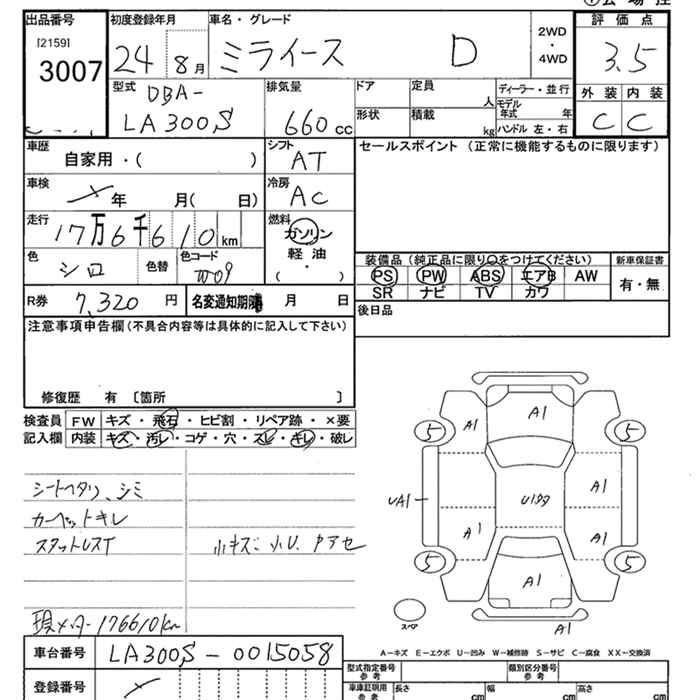 出品番号 初度登録年月 車名・グレード 2WD・4WD 評価点
[2159] 3007 24 8月 ミライース D 3.5
型式 排気量 ドア 定員 人 ディーラー・並行 外装 内装
DBA-
LA300S 660cc 形状 積載 kg モデル年式 年 ハンドル 左・右 C C
車歴 自家用・( ) シフト AT セールスポイント (正常に機能するものに限ります)
車検 年 月( 日) 冷房 AC
走行 17万6千610km 燃料 ガソリン 軽油 ( ・ )
色 シロ 色替 色コード W09
装備品 (純正品に限り○をつけてください) 新車保証書
PS PW ABS エアB AW 有・無
SR ナビ TV カワ
R券 7,320円 名変通知期限 月 日 後日品
注意事項申告欄(不具合内容等は具体的に記入して下さい)
修復歴 有 〔箇所 〕
検査員 FW キズ・飛石・ヒビ割・リペア跡・×要
記入欄 内装 キズ・汚レ・コゲ・穴・スレ・キレ・破レ
シートヘタリ、シミ
カーペットキレ
スタットレスT 小キズ 小U
現メーター176610km
A1
5 A1 5
UA1 U1 A1
A1 A1
5 A1 5
スペア A1
A-キズ E-エクボ U-凹み W-補修跡 S-サビ C-腐食 XX-交換済
車台番号 LA300S-0015058
型式指定番号 参考 類別区分番号 参考
登録番号 車庫証明用 参考 長さ cm 幅 cm 高さ cm